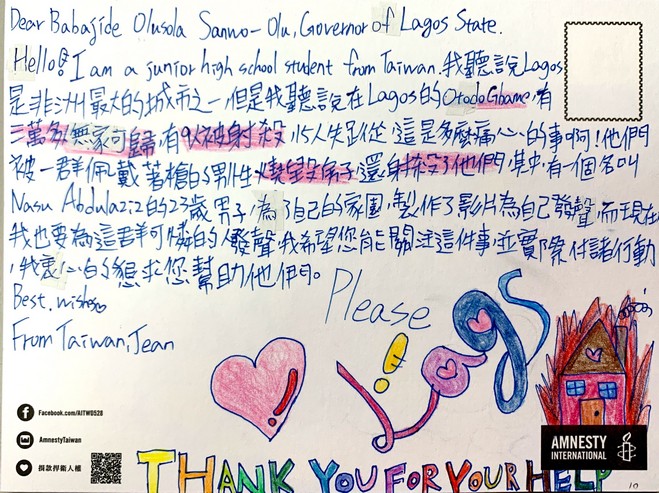 Dear Babajide Olusola Sanwo-Olu, Governor of Lagos State.
Hello! I am a junior high school student from Taiwan. 我聽說Lagos
是非洲最大的城市之一,但是我聽說在Lagos的Otodo Gbame,有
三萬多人無家可歸,有9人被射殺,15人失蹤,這是多麼痛心的事啊!他們
被一群佩戴著槍的男性燒毀房子,還射殺了他們,其中有一個名叫
Nasu Abdulaziz的23歲男子,為了自己的家園,製作了影片為自己發聲,而現在
我也要為這群可憐的人發聲,我希望您能關注這件事,並實際付諸行動
,我衷心的懇求您幫助他們。
Best wishes
From Taiwan, Jean
Please
Lags
THANK YOU FOR YOUR HELP
Facebook.com/AITW0528
AmnestyTaiwan
捐款捍衛人權
AMNESTY
INTERNATIONAL
10